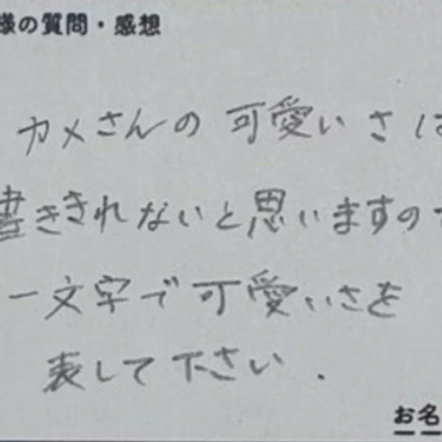 様の質問・感想
カメさんの可愛いさは
書ききれないと思いますので
一文字で可愛いさを
表して下さい.
お名